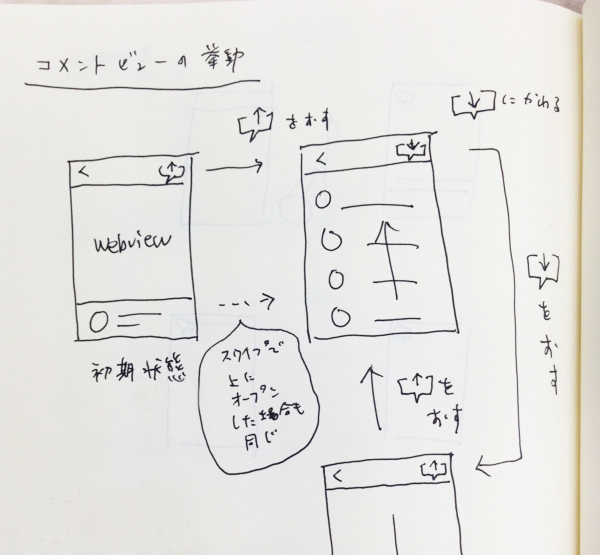 コメントビューの挙動
↑ をおす
↓ にかわる
<
↑
<
↓
webview
初期状態
スワイプで
上に
オープン
した場合も
同じ
↓
を
お
す
↑ を
おす
<
↑